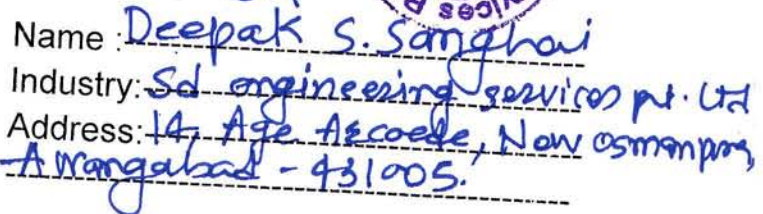 vices P
Name : Deepak S. Sanghai
Industry: Sd engineering services pvt. Ltd
Address: 14, Age Arcoede, New osmanpura,
Awrangabad - 431005.